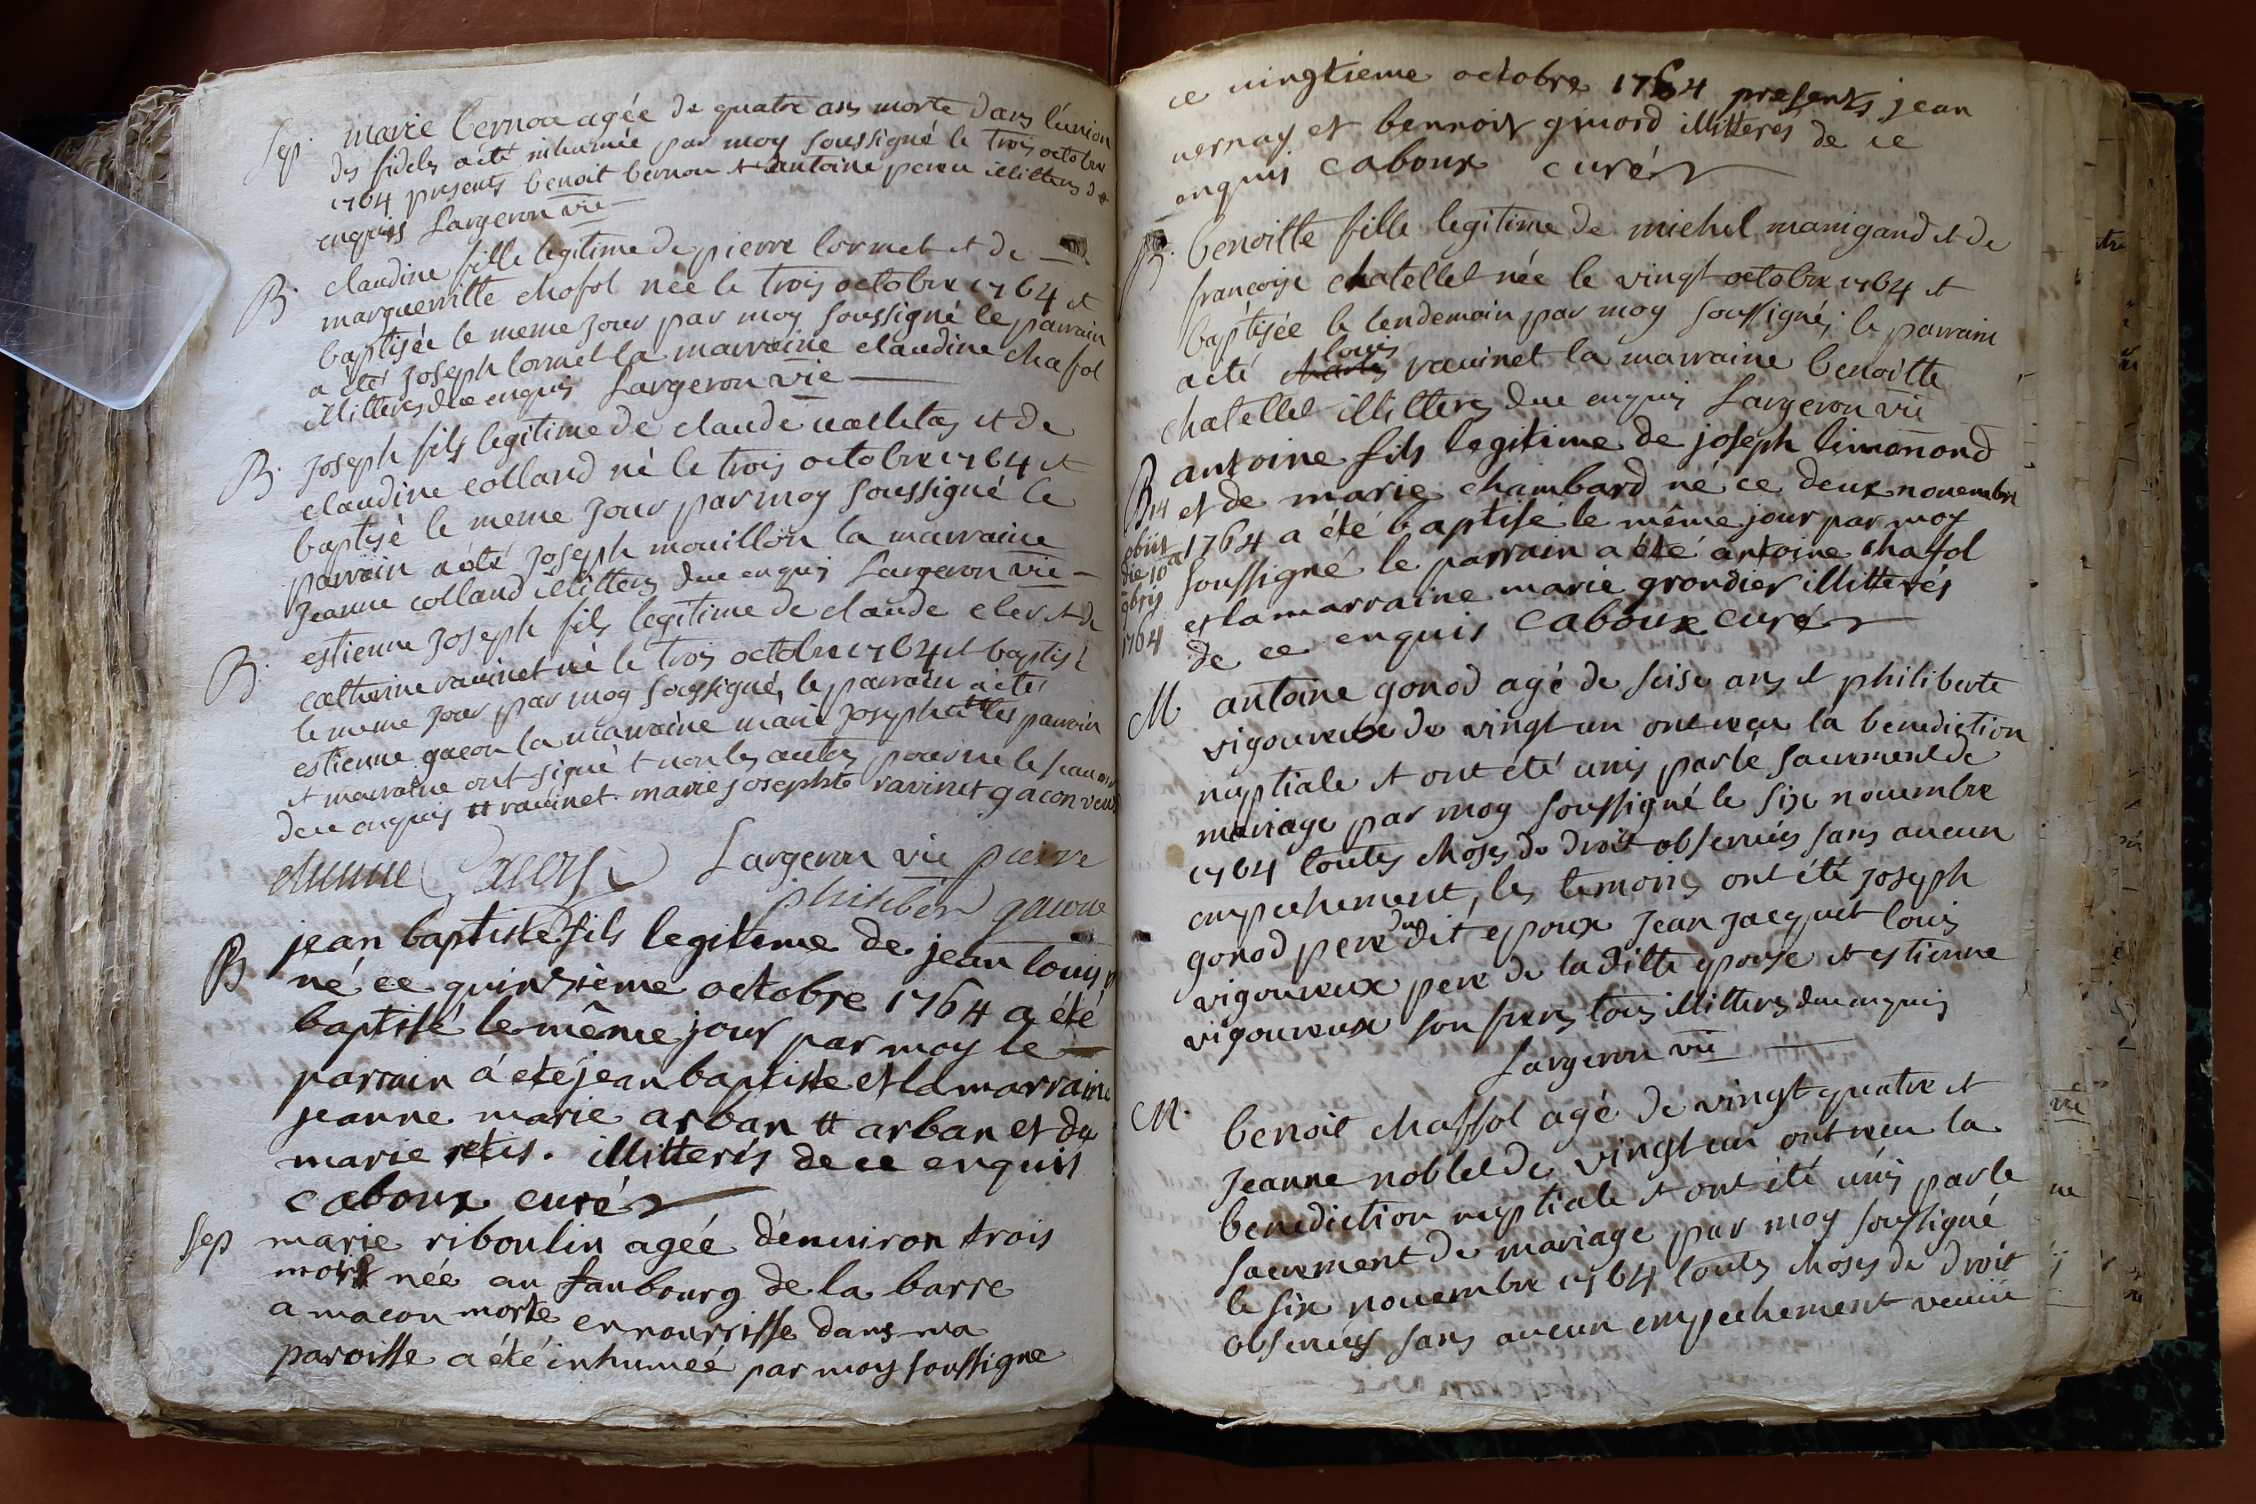 Sep. marie bernou agée de quatre ans morte dans l'union
des fideles a été inhumée par moy soussigné le trois octobre
1764 presents benoit bernou et antoine perou illitteres de
enquis Largeron vic
B. claudine fille legitime de pierre lornet et de
margueritte chafol née le trois octobre 1764 et
baptisée le meme jour par moy soussigné le parrain
a été joseph lornet la marraine claudine chafol
illitteres de ce enquis Largeron vic
B. joseph fils legitime de claude et de
claudine colland né le trois octobre 1764 et
baptisé le meme jour par moy soussigné le
parrain a été joseph mouillon la marraine
jeanne colland illitteres de ce enquis Largeron vic
B. estienne joseph fils legitime de claude cler et de
catherine ravinet né le trois octobre 1764 et baptisé
le meme jour par moy soussigné, le parrain a été
estienne gacon la marraine marie josephte les parrain
et marraine ont signé et non les autres pour ne le scavoir
de ce enquis tt ravinet. marie josephte ravinet gacon
Largeron vic pierre
philiber gacon
B jean baptiste fils legitime de jean louis
né ce quinzième octobre 1764 a été
baptisé le même jour par moy le
parrain á eté jean baptiste et la marraine
jeanne marie arban tt arban et de
marie retis. illitterés de ce enquis
caboux curé
Sep marie riboulin agée d'enuiron trois
mois née au faubourg de la barre
a macon morte en nourrisse dans ma
paroisse a été inhumeé par moy soussigne
ce uingtieme octobre 1764 presents jean
uernay et bennoit gonord illitteres de ce
enquis caboux curé
B. benoitte fille legitime de michel manigand et de
francoise chatellet née le vingt octobre 1764 et
baptisée le lendemain par moy soussigné; le parrain
a été charles louis ravinet la marraine benoitte
chatellet illitteres de ce enquis Largeron vic
B antoine fils legitime de joseph limonond
et de marie chambard né ce deux nouembre
obiit 1764 a été baptisé le même jour par moy
die 10a soussigné le parrain a été antoine chafol
9bris et la marraine marie grondier illitterés
1764 de ce enquis caboux curé
M. antoine gonod agé de seise ans et philiberte
vigoureux de vingt un ont reçu la benediction
nuptiale et ont été unis par le sacrement de
mariage par moy soussigné le six nouembre
1764 toutes choses de droit obseruées sans aucun
empechement, les temoins ont été joseph
gonod pere du dit epoux jean jacquet louis
vigoureux pere de la ditte epouse et estienne
vigoureux son frere tous illitteres de ce enquis
Largeron vic
M. benoit chaffol agé de vingt quatre et
jeanne noblet de vingt un ont reçu la
benediction nuptiale et ont été unis par le
sacrement de mariage par moy soussigné
le six nouembre 1764 toutes choses de droit
obseruées sans aucun empechement venuë